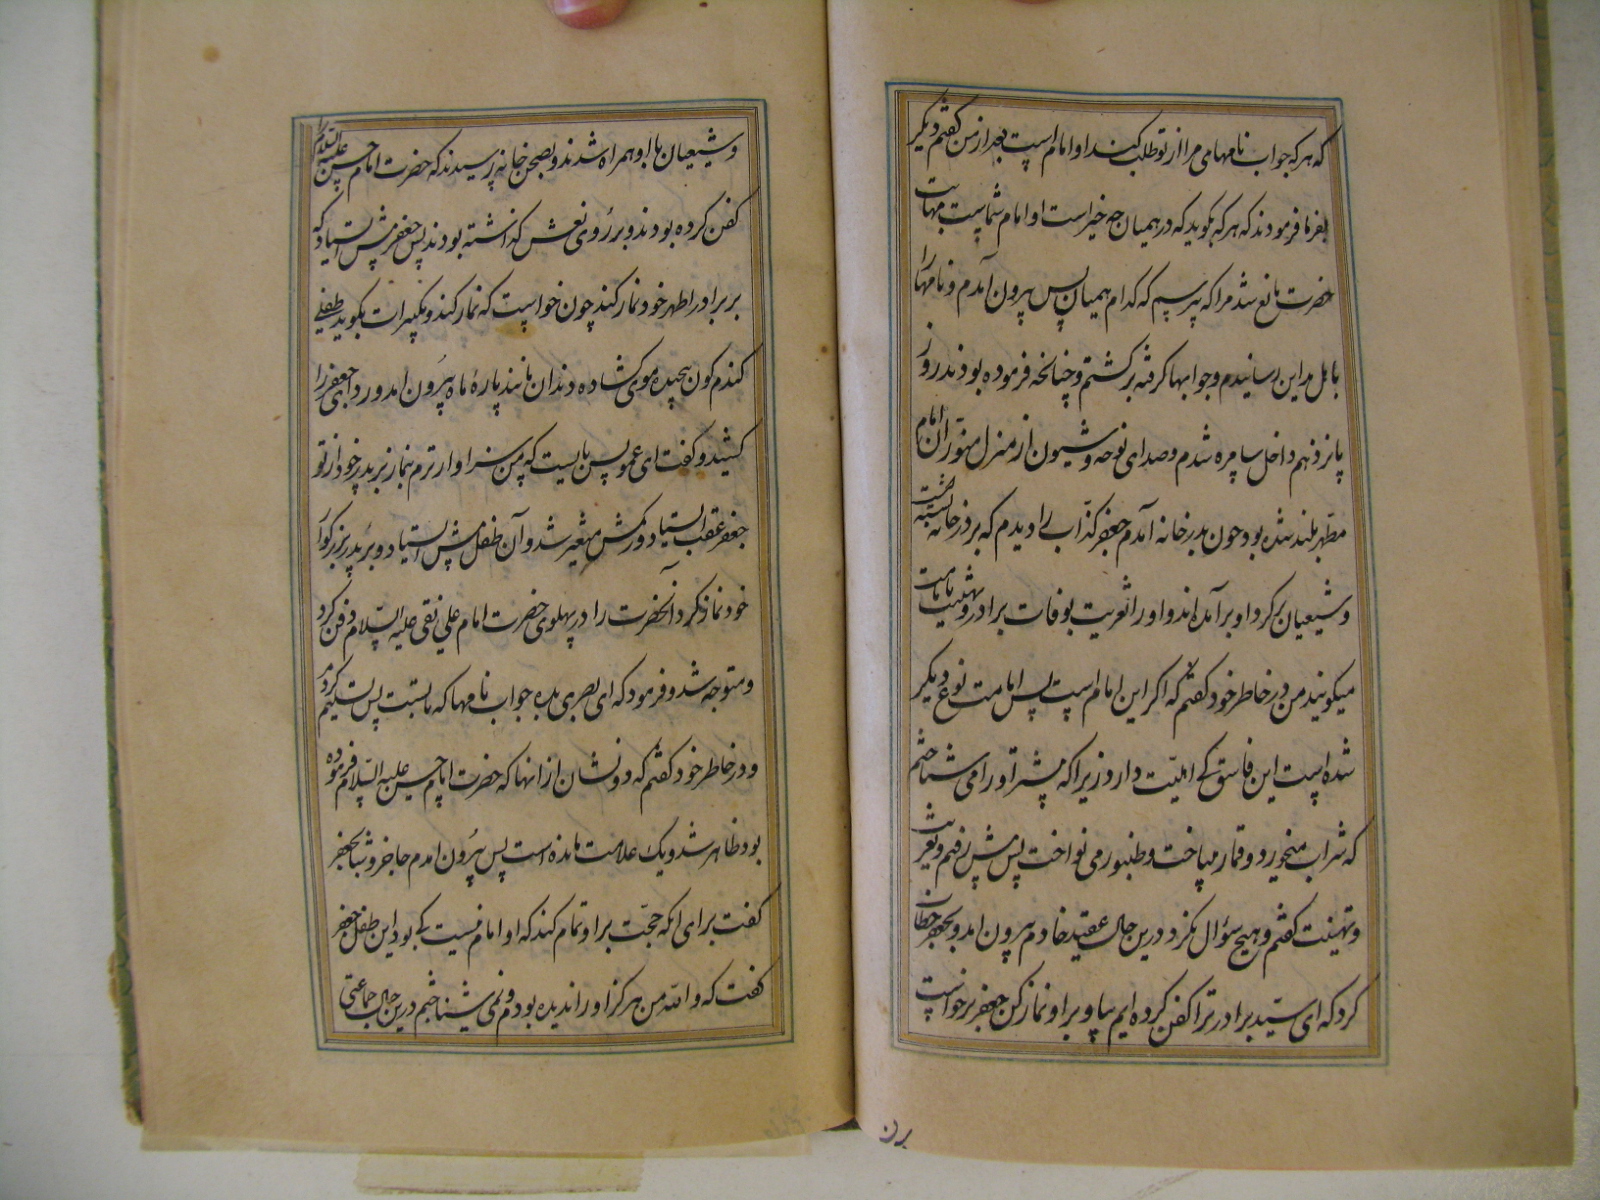 که هر که جواب نامهای مرا از تو طلب کند او امام است بعد از من کفتم دیگر
بفرما فرمودند که هر که بکوید که در همیان چه خبر است او امام شماست مهابت
حضرت مانع شد مرا که بپرسم که کدام همیان پس بیرون آمدم و نامها را
باهل مداین رسانیدم و جوابها کرفته برکشتم و چنانچه فرموده بودند روز
پانزدهم داخل سامره شدم و صدای نوحه و شیون از منزل منور ان امام
مطهر بلند شده بود چون بدر خانه آمدم جعفر کذاب را دیدم که بر در خانه نشسته
و شیعیان بکرد او بر آمده اند و او را تعزیت بوفات برادر و تهنیت بامامت
میکویند من در خاطر خود کفتم که اکر این امام است پس امامت نوع دیکر
شده است این فاسق کی اهلیت دارد زیرا که پیشتر او را می شناختم
که شراب میخورد و قمار میباخت و طنبور می نواخت پس پیش رفتم و تعزیت
و تهنیت کفتم و هیچ سؤال نکرد درین حال عقید خادم بیرون امد و بجعفر خطاب
کرد که ای سید برادر ترا کفن کرده ایم بیا و بر او نماز کن جعفر برخواست
رن
و شیعیان با او همراه شدند و بصحن خانه رسیدند که حضرت امام حسن علیه السلام را
کفن کرده بودند و بر روی نعش کذاشته بودند پس جعفر پیش ایستاد که
بر برادر اطهر خود نماز کند چون خواست که نماز کند و تکبیرات بکوید طفلی
کندم کون پیچیده موی کشاده دندان مانند پارهٔ ماه بیرون امد و ردای جعفر را
کشید و کفت ای عمو پس بایست که من سزاوارترم بنماز بر پدر خود از تو
جعفر عقب ایستاد و رنکش متغیر شد و آن طفل پیش ایستاد و بر پدر بزرکوار
خود نماز کرد و آنحضرت را در پهلوی حضرت امام علی نقی علیه السلام دفن کرد
و متوجه شد و فرمود که ای بصری بده جواب نامها که با تست پس تسلیم کردم
و در خاطر خود کفتم که دو نشان از انها که حضرت امام حسن علیه السلام فرموده
بود ظاهر شد و یک علامت مانده است پس بیرون امدم حاجز وشا بجعفر
کفت برای انکه حجت بر او تمام کند که او امام نیست کی بود این طفل جعفر
کفت که والله من هرکز او را ندیده بودم و نمی شناختم درین حال جماعتی